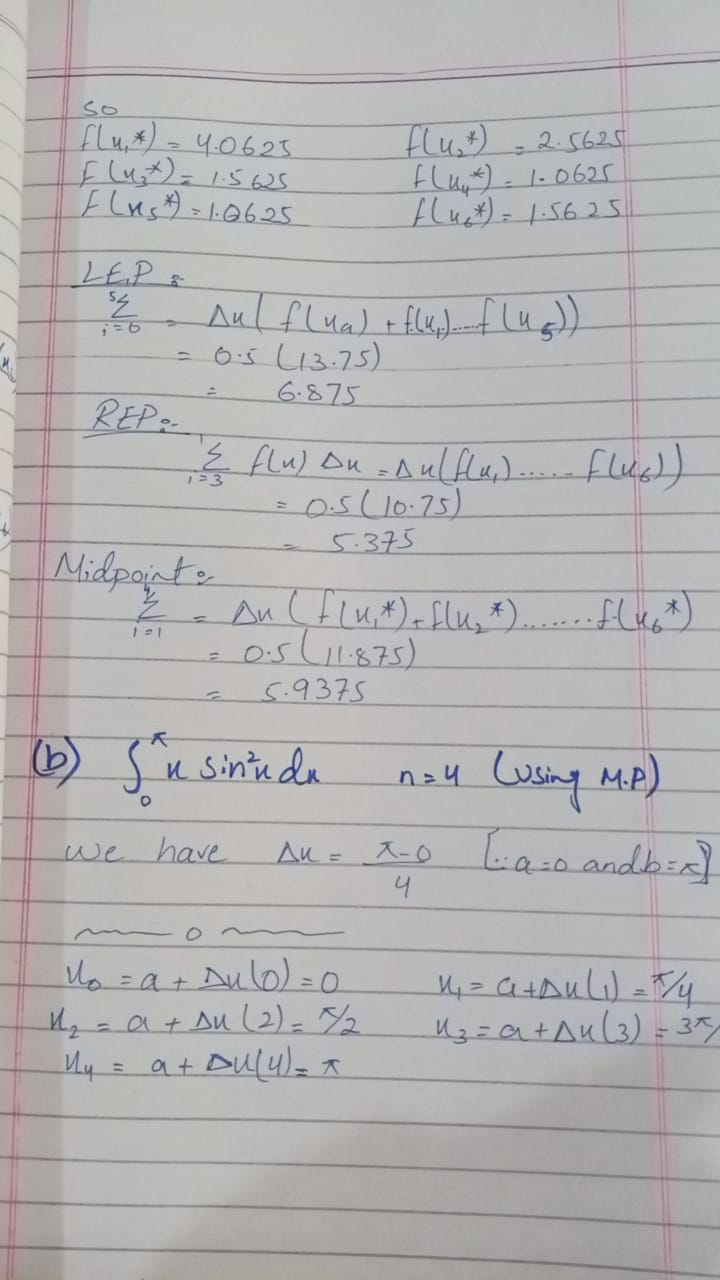 so
f(x₁*) = 4.0625 f(x₂*) = 2.5625
f(x₃*) = 1.5625 f(x₄*) = 1.0625
f(x₅*) = 1.0625 f(x₆*) = 1.5625
LEP :-
5 Σ i=0 = Δx( f(x₀) + f(x₁).....f(x₅))
= 0.5 (13.75)
= 6.875
REP :-
Σ i=3 f(x) Δx = Δx(f(x₁)...... f(x₆))
= 0.5(10.75)
= 5.375
Midpoint :-
Σ i=1 = Δx ( f(x₁*)+f(x₂*).......f(x₆*)
= 0.5 (11.875)
= 5.9375
(b) ∫₀^π x sin²x dx n=4 (Using M.P)
we have Δx = π-0/4 [∵ a=0 and b=π]
o
x₀ = a + Δx(0) = 0 x₁ = a+Δx(1) = π/4
x₂ = a + Δx (2) = π/2 x₃ = a+Δx(3) = 3π/
x₄ = a + Δx(4) = π